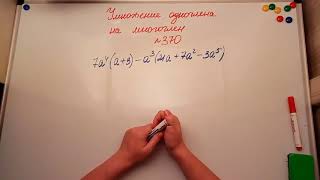 Умножение одночлена
на многочлен
№370
7a⁴(a+3)-a³(21a+7a²-3a⁵)